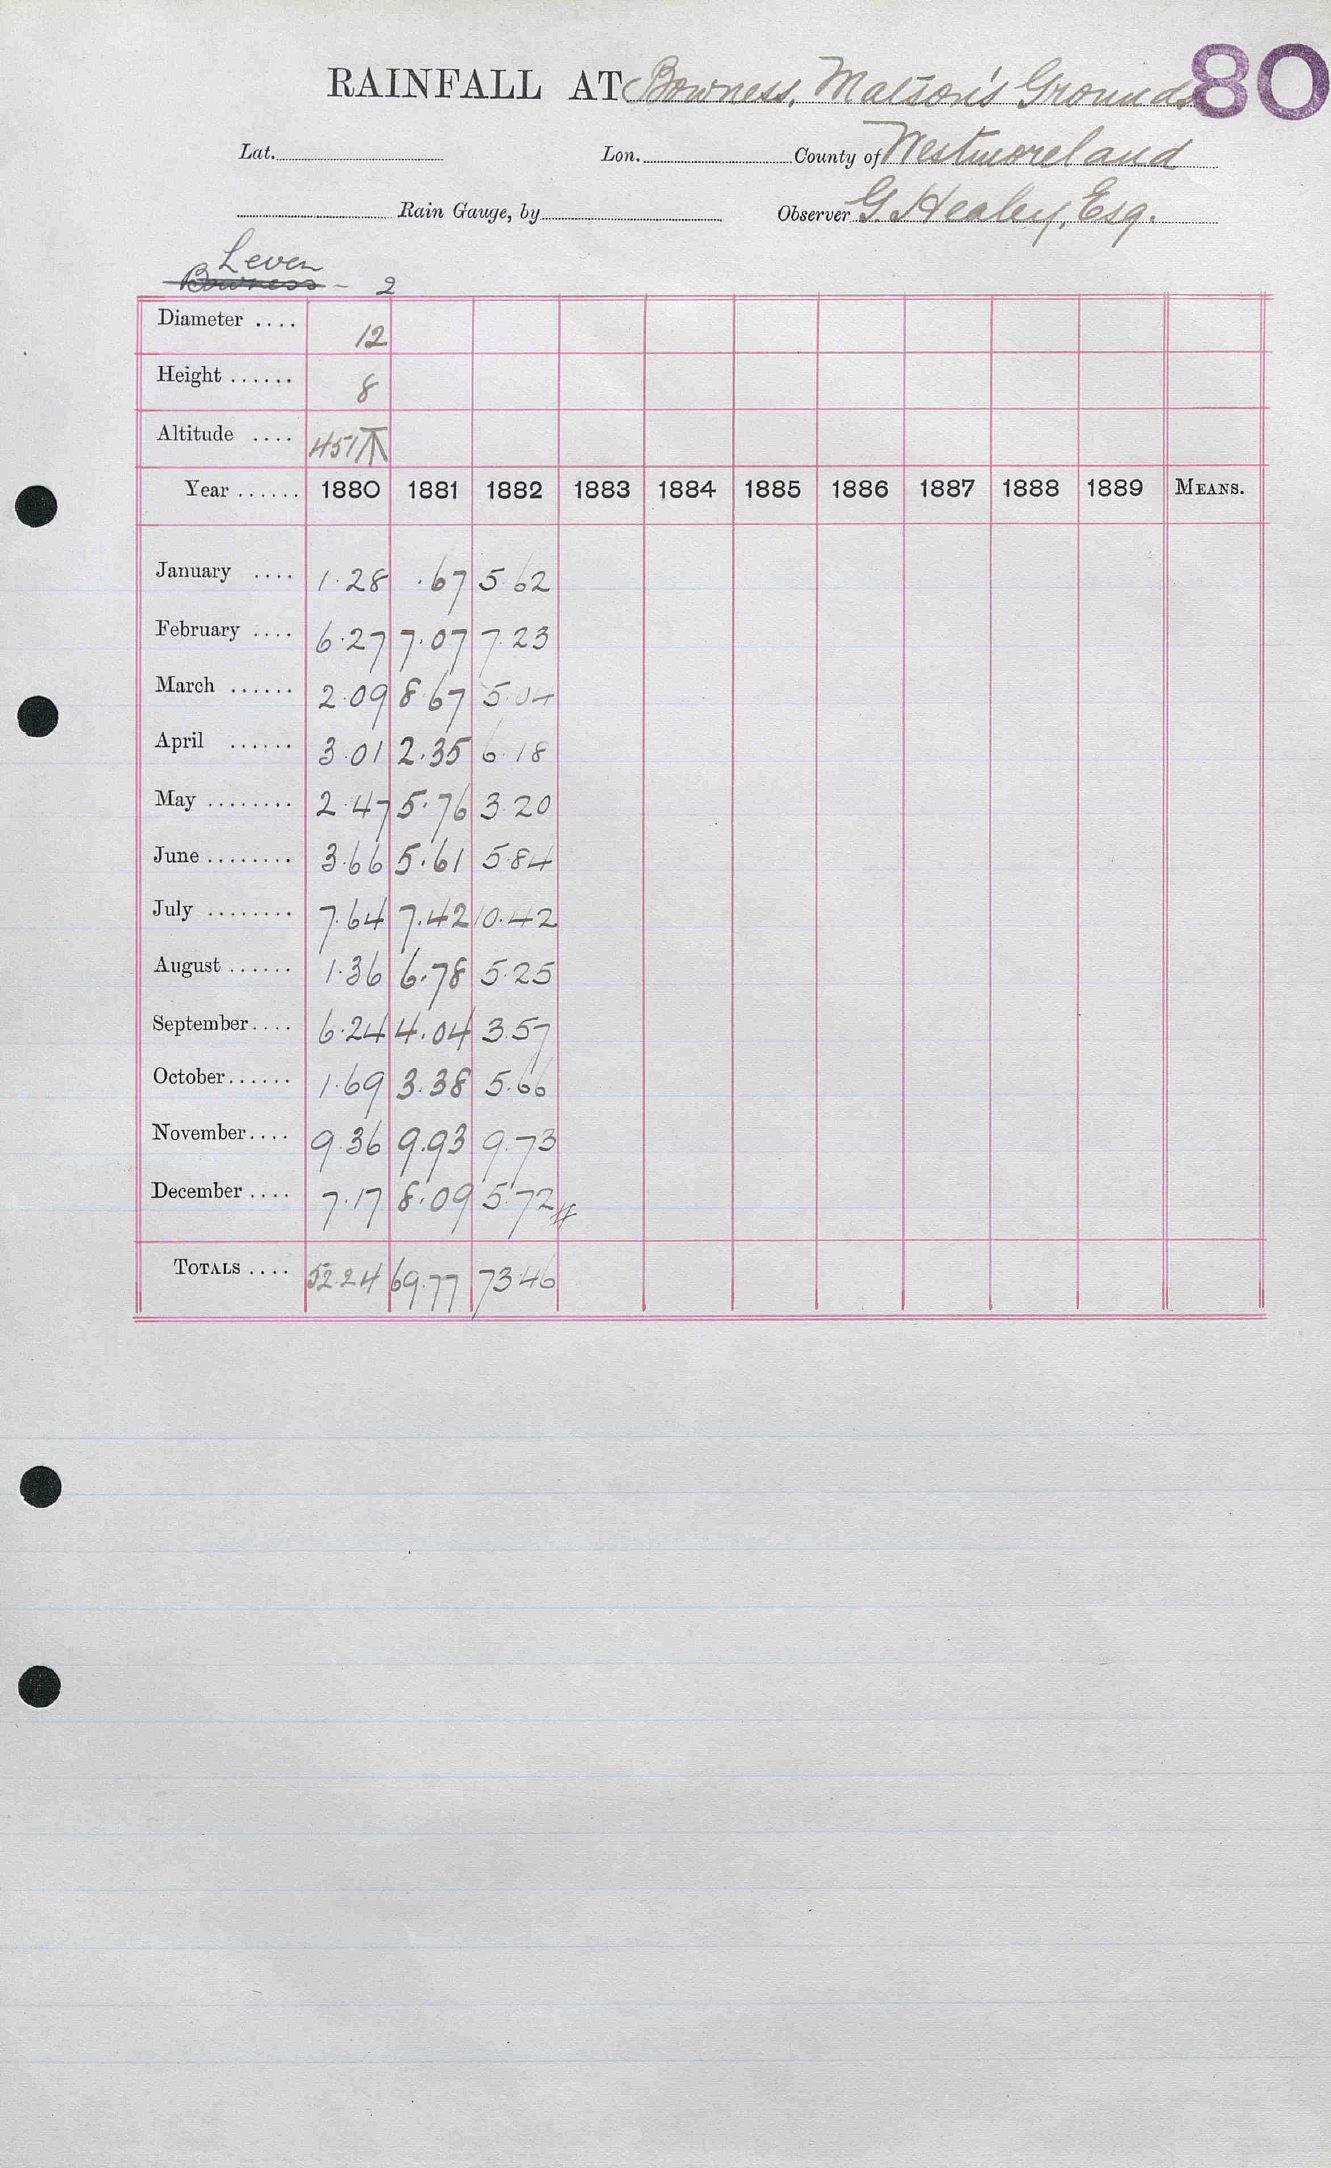 RAINFALL AT Bowness, Matson's Grounds 80
Lat. Lon. County of Westmoreland
Rain Gauge, by Observer G. Healey, Esq.
Leven
Bowness - 2
Diameter .... 12
Height ...... 8
Altitude .... 451 T
Year ...... 1880 1881 1882 1883 1884 1885 1886 1887 1888 1889 MEANS.
January .... 1.28 .67 5.62
February .... 6.27 7.07 7.23
March ...... 2.09 8.67 5.04
April ...... 3.01 2.35 6.18
May ........ 2.47 5.76 3.20
June ........ 3.66 5.61 5.84
July ........ 7.64 7.42 10.42
August ...... 1.36 6.78 5.25
September.... 6.24 4.04 3.57
October...... 1.69 3.38 5.66
November.... 9.36 9.93 9.73
December .... 7.17 8.09 5.72 #
TOTALS .... 52.24 69.77 73.46